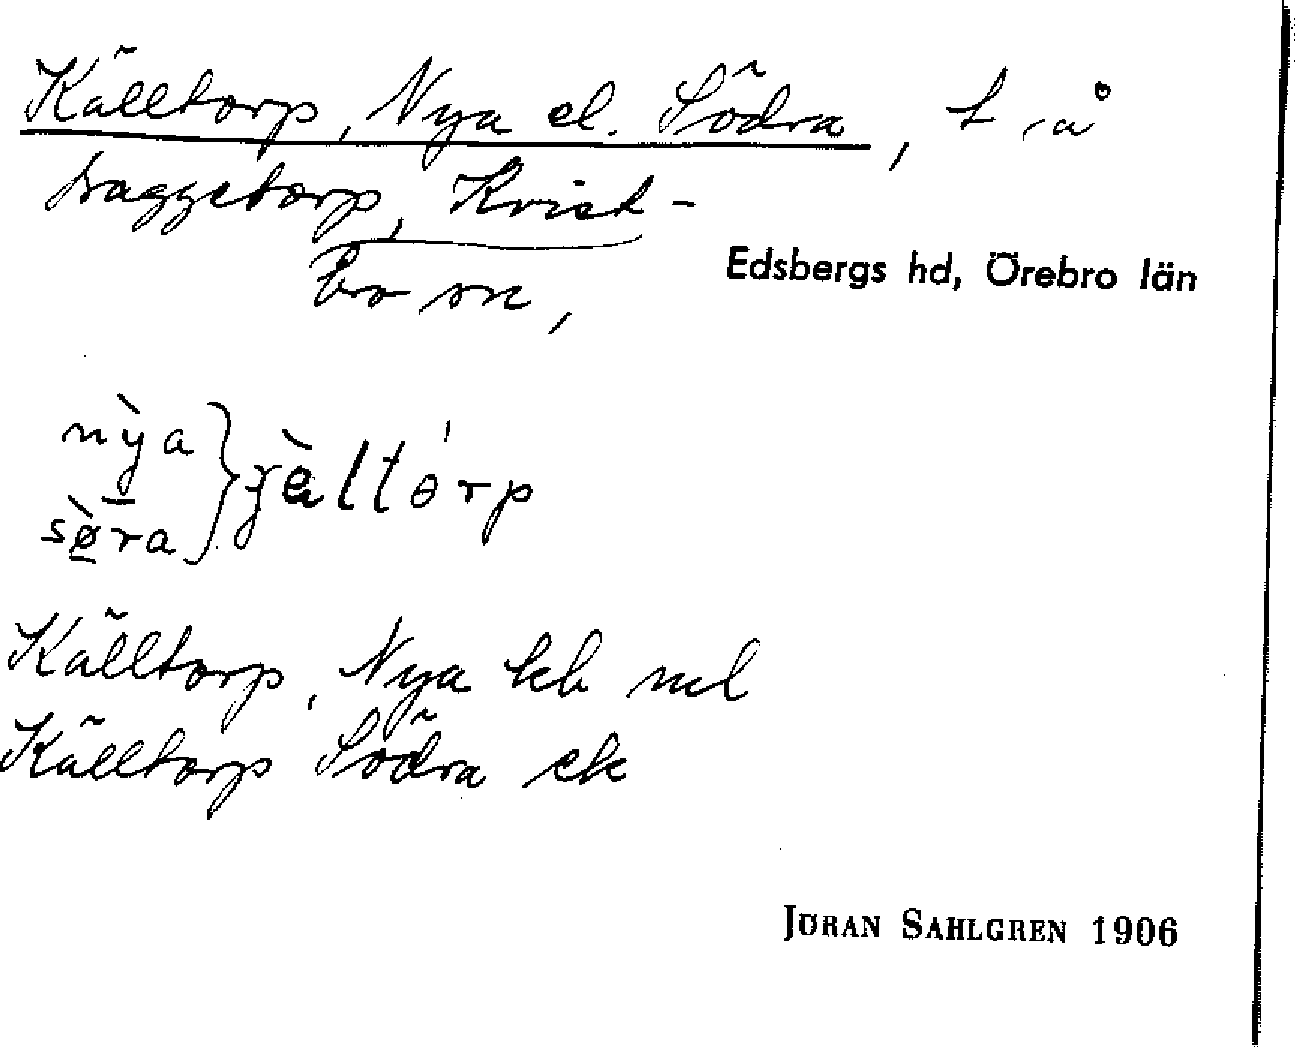 Källtorp, Nya el. Södra, t, å
haggetorp, Kvist-
bro sn,
Edsbergs hd, Örebro län
nỳa
sø̀̄ra } ltorp
Källtorp, Nya kb ml
Källtorp Södra ek
JÖRAN SAHLGREN 1906